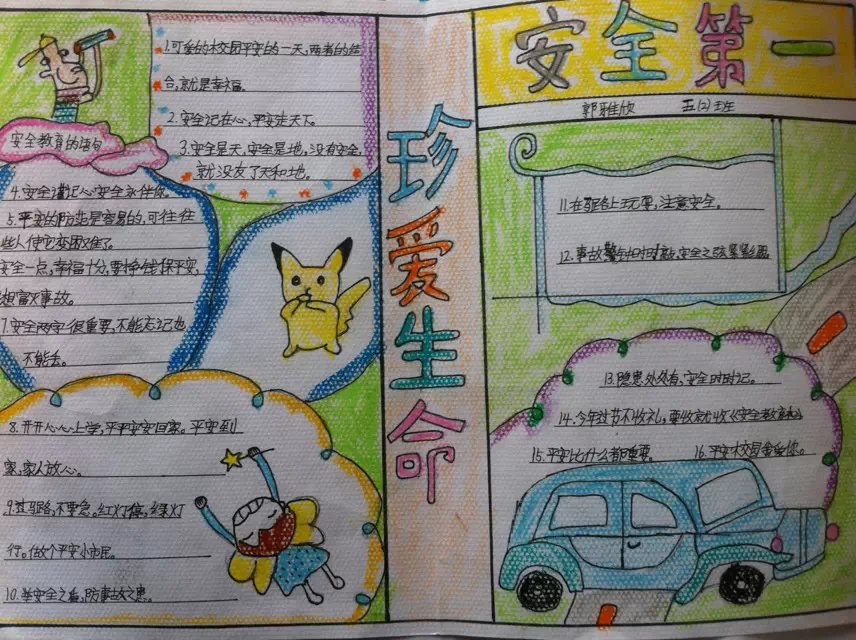 安全第一
郭雅欣 五(2)班
珍爱生命
安全教育的语句
1.可爱的校园平安的一天,两者的结
合,就是幸福。
2.安全记在心,平安走天下。
3.安全是天,安全是地,没有安全,
就没友了天和地。
4.安全谨记心安全永伴你。
5.平安的防范是容易的,可往往
些人使它变困难了。
安全一点,幸福十分,要挣钱保平安,
想富少事故。
7.安全两字很重要,不能忘记也
不能丢。
8.开开心心上学,平平安安回家。平安到
家,家人放心。
9.过马路,不要急。红灯停,绿灯
行。做个平安小市民。
10.举安全之盾,防事故之患。
11.在马路上玩耍,注意安全。
12.事故警钟时时敲,安全之弦紧紧绷
13.隐患处处有,安全时时记。
14.今年过节不收礼,要收就收《安全教育
15.平安比什么都重要。 16.平安校园